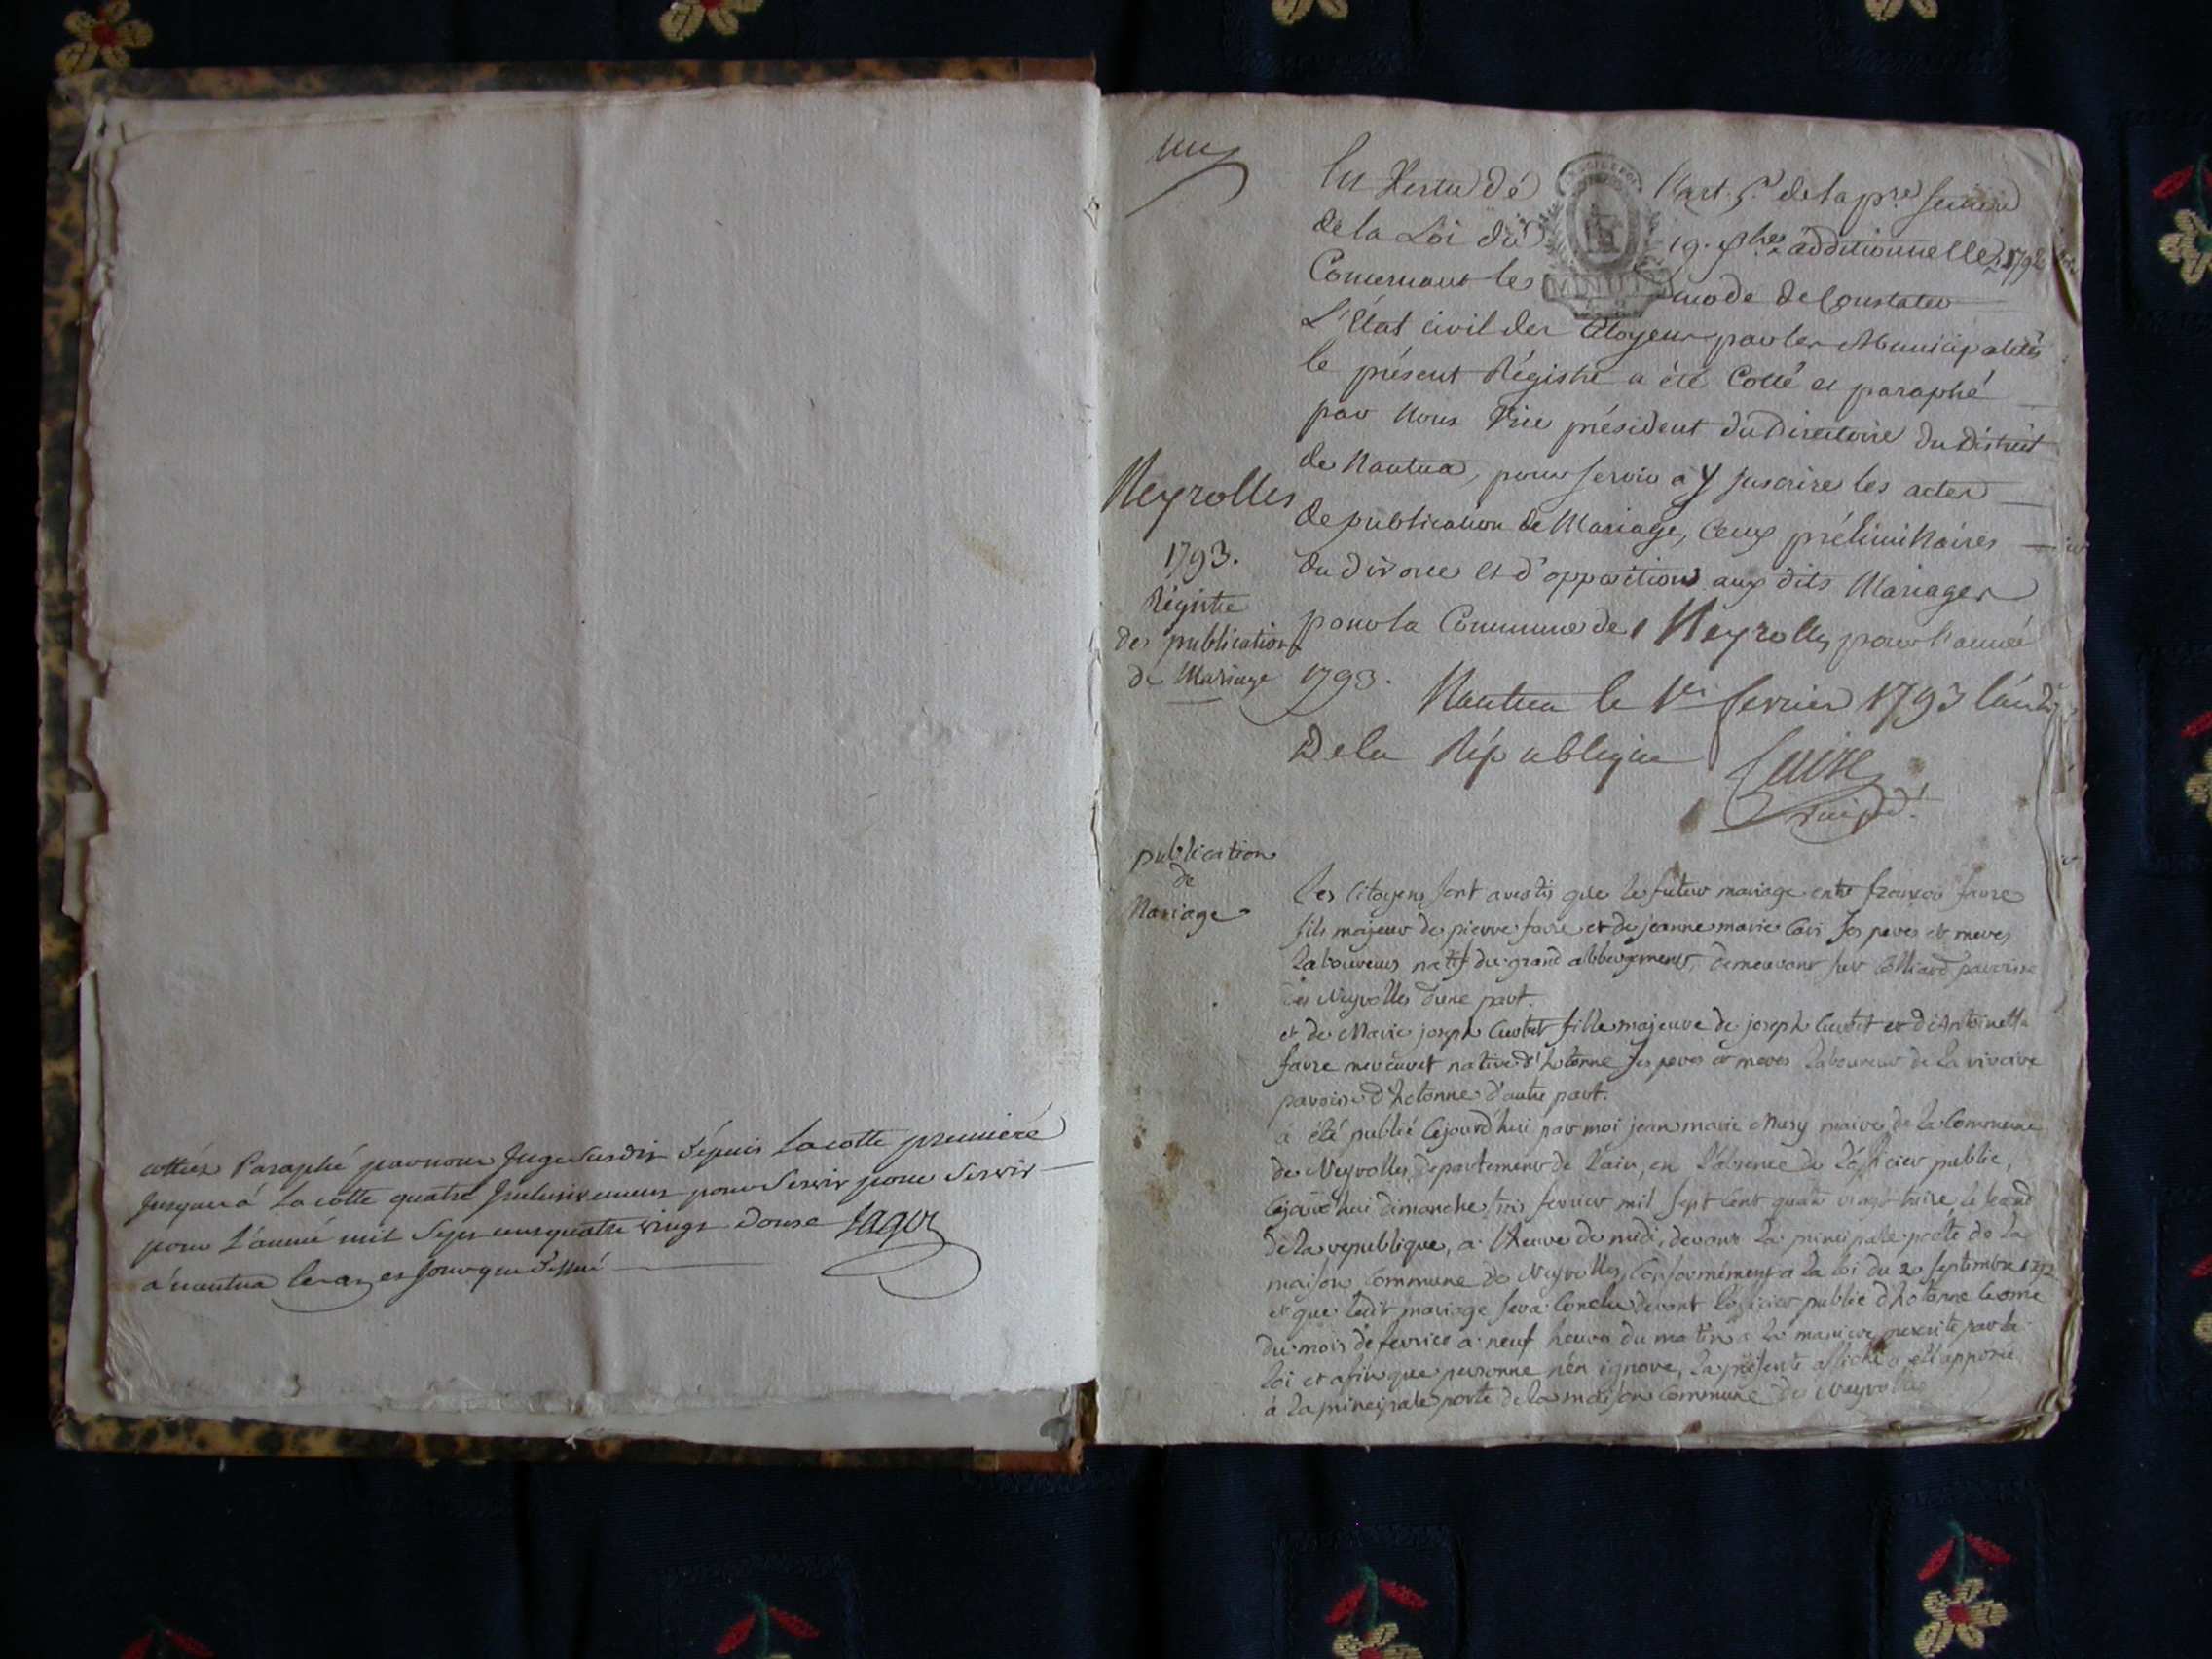 cottéz Paraphé par nous Juge Susdit dépuis la cotte premiere
Jusques á la cotte quatre Jnclusivement pour Servir pour Servir
pour L'année mil Sept cens quatre vingt douse Jagot
a nantua les an et Jour que dessus
un
En Vertu dé l'art. 5. de la p.re Section
de la Loi du 19. additionnelle 1792
Concernant le mode de Constater
L'État civil des Citoyens par les Municipalités
le présent Régistre a été Cotté et paraphé
par Nous Vice président du Directoire du District
de Nantua, pour servir a y Inscrire les actes
de publication de Mariage, Ceux préliminaires
du divorce et d'opposition aux dits Mariages
pour la Commune de Neyrolles pour l'année
1793.
Nantua le 1er fevrier 1793 l'an 2
De la République
Neyrolles
1793.
Régistre
des publications
de Mariage
MINUTE
publication
de
Mariage
Les Citoyens sont avertis que le futur mariage entre françois favre
fils majeur de pierre favre et de jeanne marie ses peres et meres
Laboureurs natif du grand abbergement, demeurant sur Colliard paroisse
des Neyrolles d'une part.
et de Marie joseph fille majeure de joseph et d'Antoinette
favre native d'hotonne ses peres et meres Laboureur de la riviere
paroisse d'hotonne d'autre part.
à été publié Cejourd'hui par moi jean marie Musy maire de la Commune
de Neyrolles, departement de l'ain, en l'absence de l'officier public,
Cejourd'hui dimanche trois fevrier mil sept cent quatre vingt treize, le second
de la republique, a l'heure de midi, devant la principale porte de la
maison Commune de Neyrolles, Conformément a la loi du 20 septembre 1792
et que ledit mariage sera Conclu devant l'officier public d'hotonne le onze
du mois de fevrier a neuf heures du matin a la maniere prescrite par la
loi et afin que personne n'en ignore, la présente affiche a été apposée
a la principale porte de la maison Commune de Neyrolles